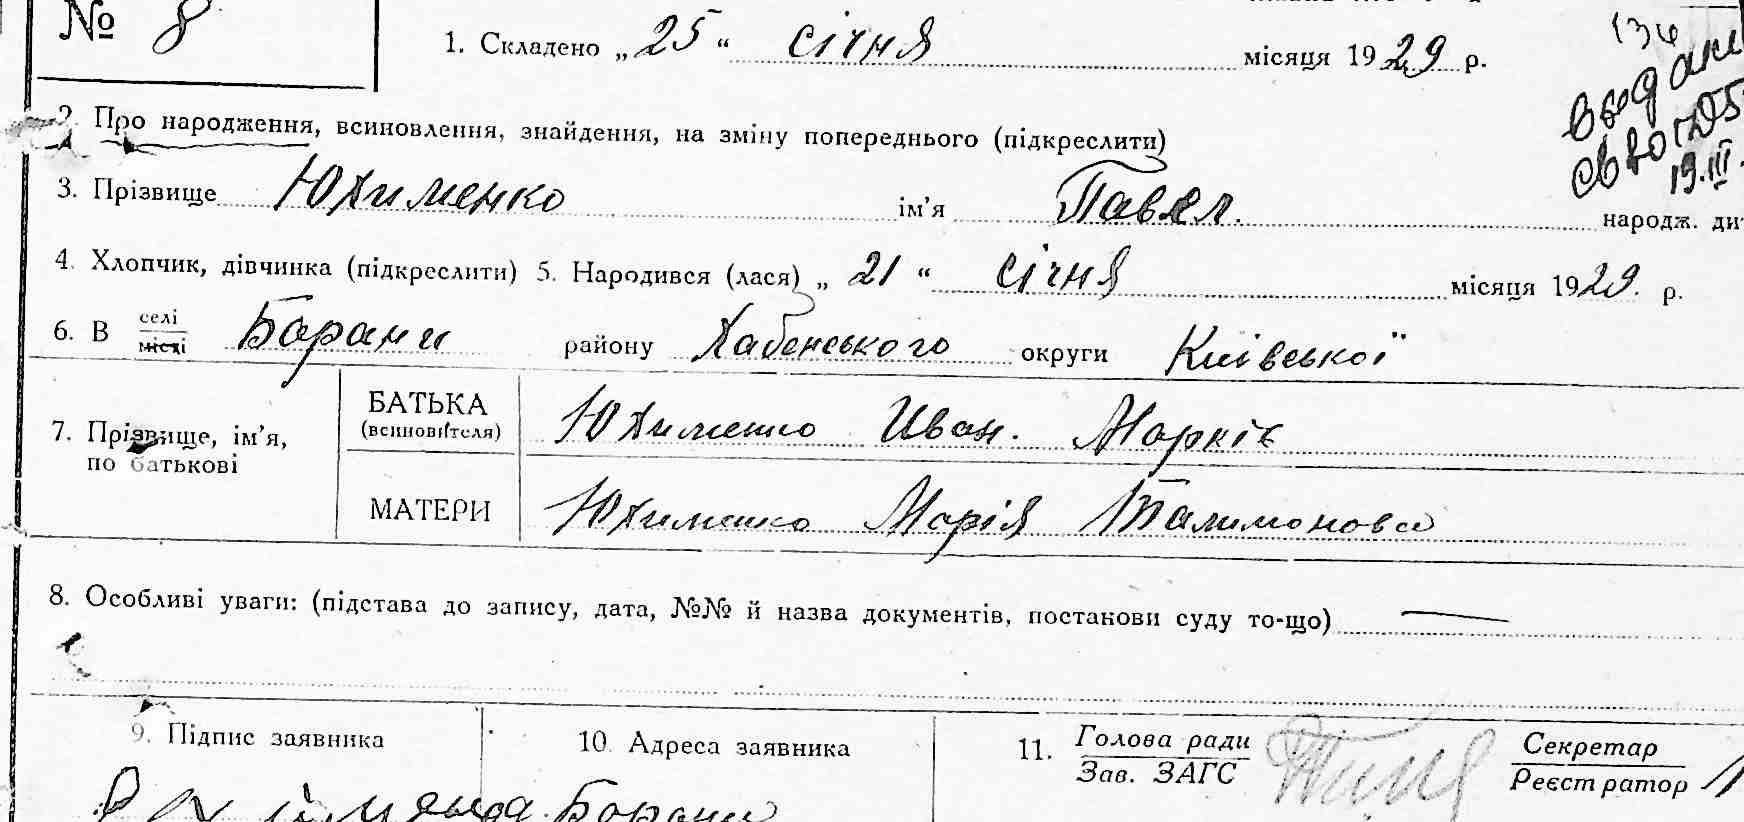 № 8
1. Складено „ 25 “ січня місяця 1929 р.
134
2. Про народження, всиновлення, знайдення, на зміну попереднього (підкреслити)
19.III.
3. Прізвище Юхименко ім’я Павел. народж. ди
4. Хлопчик, дівчинка (підкреслити) 5. Народився (лася) „ 21 “ січня місяця 1929. р.
6. В селі Борани району Хабенського округи Київської
місті
7. Прізвище, ім’я, по батькові
БАТЬКА (всиновителя) Юхименко Иван. Марків
МАТЕРИ Юхименко Марія Талимонова
8. Особливі уваги: (підстава до запису, дата, №№ й назва документів, постанови суду то-що) —
9. Підпис заявника
10. Адреса заявника
11. Голова ради
Зав. ЗАГС
Секретар
Реєстратор
Борани